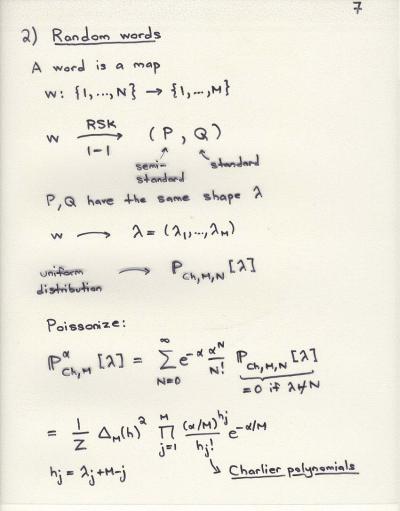 7
2) Random words
A word is a map
w: {1,...,N} → {1,...,M}
w RSK→ 1-1 (P, Q)
semi-standard standard
P, Q have the same shape λ
w → λ = (λ₁,...,λ_M)
uniform distribution → P_{Ch,M,N}[λ]
Poissonize:
ℙ^α_{Ch,M}[λ] = ∑_{N=0}^∞ e^{-α} α^N/N! ℙ_{Ch,M,N}[λ]
=0 if λ⊬N
= 1/Z Δ_M(h)² ∏_{j=1}^M (α/M)^{h_j}/h_j! e^{-α/M}
h_j = λ_j+M-j ↘ Charlier polynomials